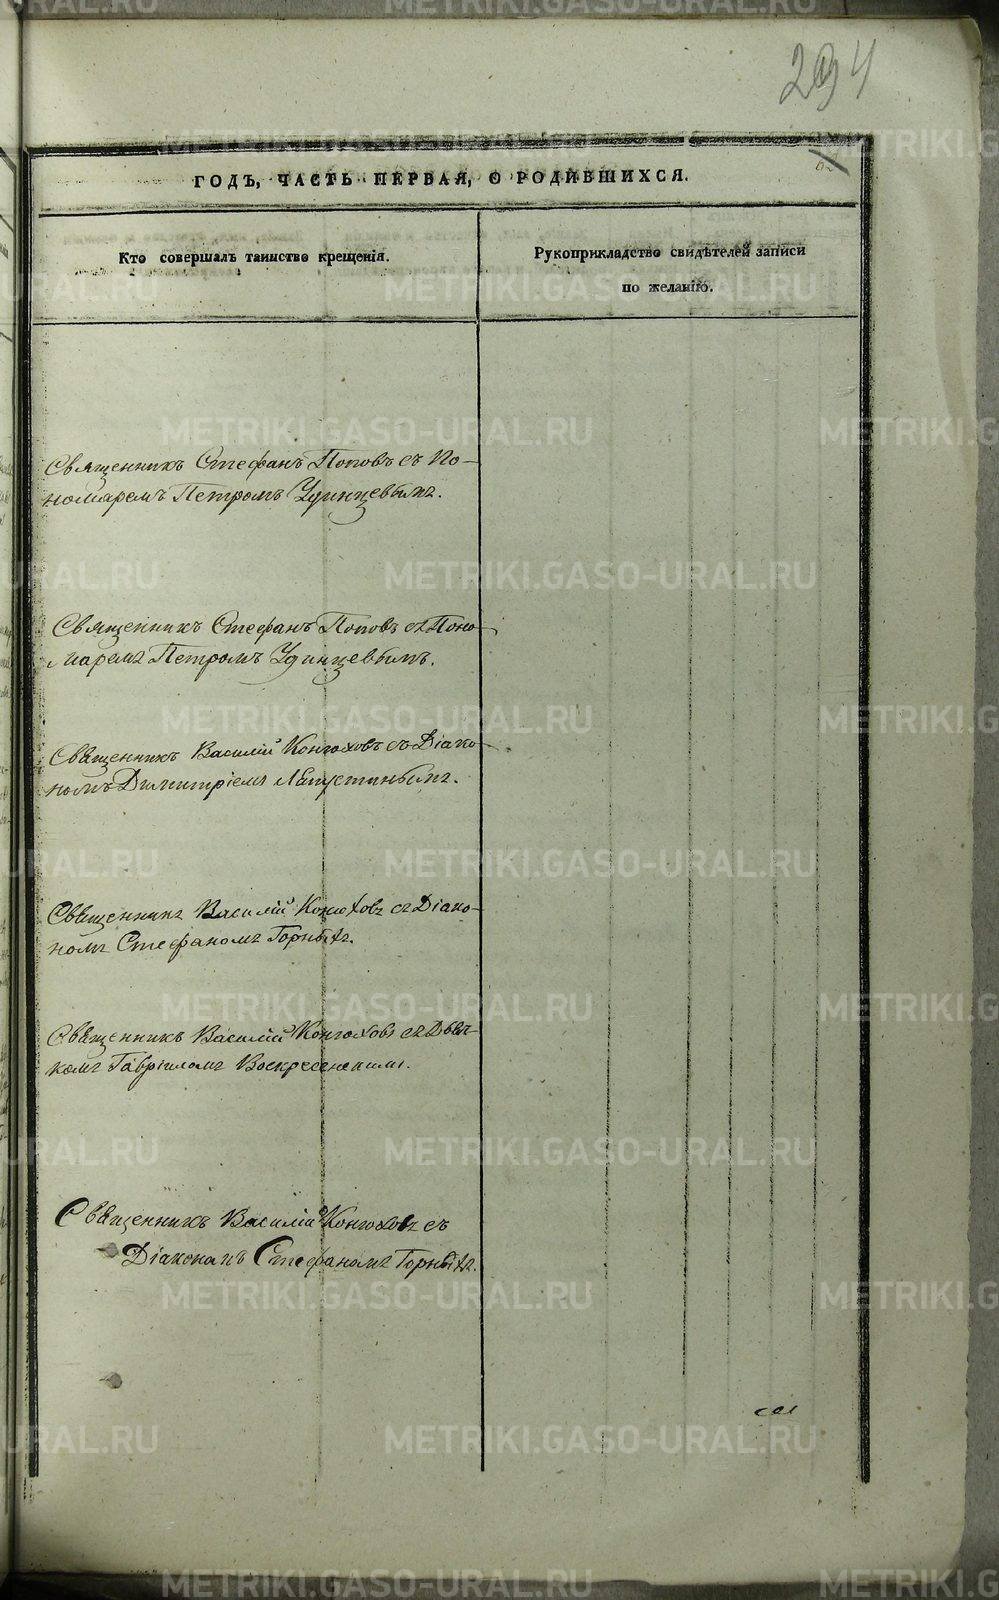 294
ГОДЪ, ЧАСТЬ ПЕРВАЯ, О РОДИВШИХСЯ.
Кто совершалъ таинство крещенія.
Рукоприкладство свидѣтелей записи
по желанію.
Священникъ Стефанъ Поповъ съ По-
номаремъ Петромъ Удинцевымъ.
Священникъ Стефанъ Поповъ съ Поно-
маремъ Петромъ Удинцевымъ.
Священникъ Василій Конюховъ съ Діако-
номъ Димитріемъ Лапустинымъ.
Священникъ Василій Конюховъ съ Діако-
номъ Стефаномъ Горныхъ.
Священникъ Василій Конюховъ съ Дьяч-
комъ Гавріиломъ Воскресенскимъ.
Священникъ Василій Конюховъ съ
Діакономъ Стефаномъ Горныхъ.
METRIKI.GASO-URAL.RU